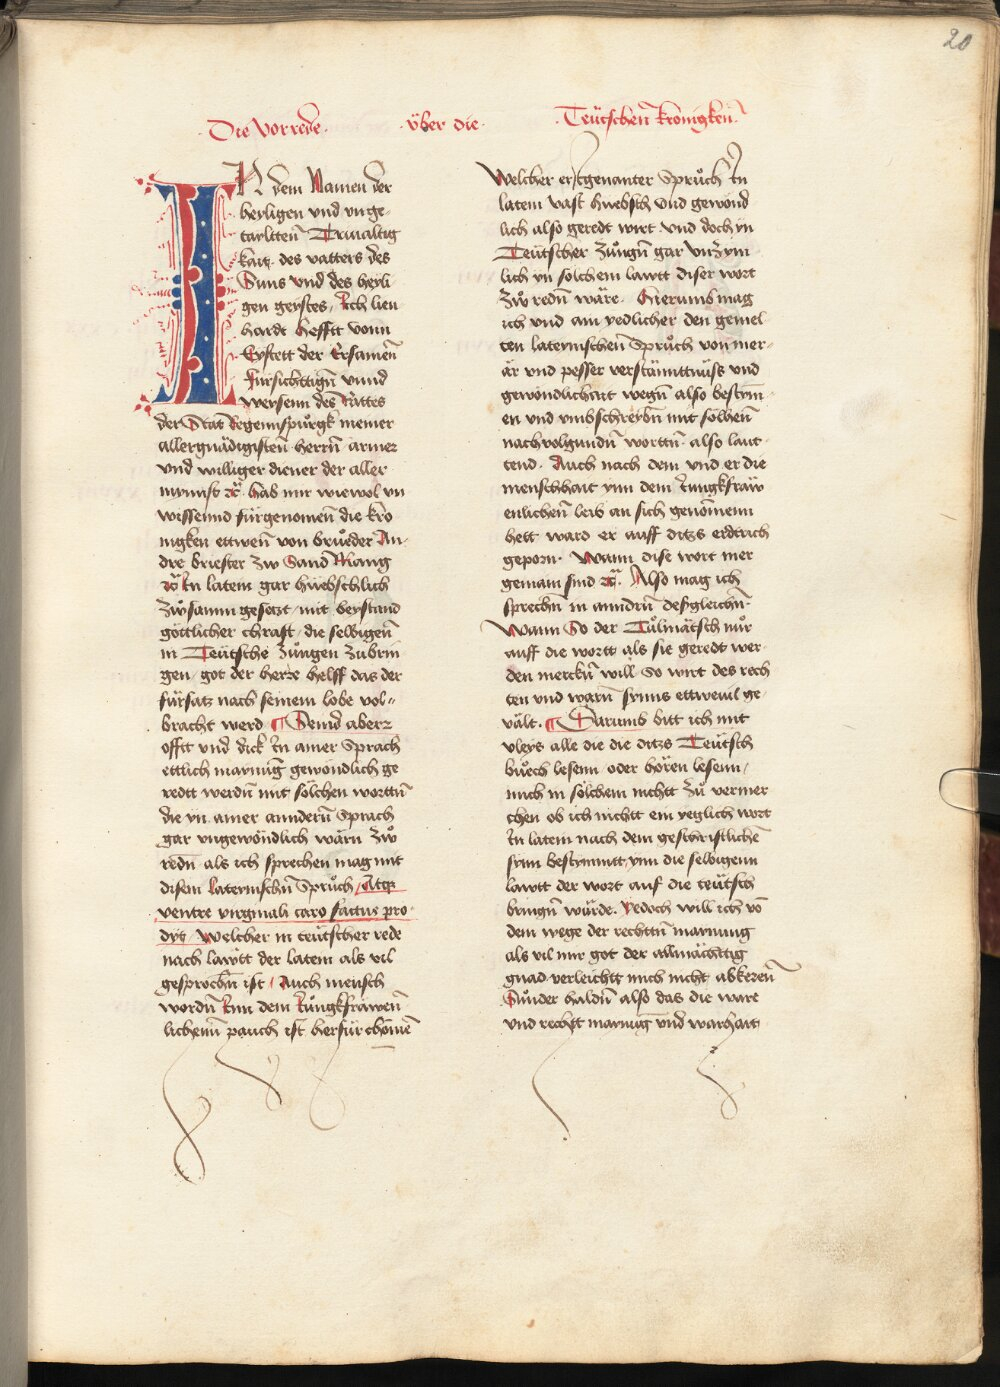 20
Die vorrede · über die · Teütschen̄ kronigken̄
IN dem Namen der
heyligen vnd vnge-
tayltten̄ Triualtig
kait des vatters des
Suns vnd des heyli
gen geystes / Ich lien
hardt Hefftt vonn
Eystett der Ersamen̄
Fürsichttign̄ vnnd
weysenn des Rattes
der Stat Regennspurgk meiner
allergnädigisten̄ herrn̄ armer
vnd williger diener der aller
mynnst ꝛc̄ hab mir wiewol vn
wissennd fürgenomen̄ die kro
nigken ettwen̄ von brůeder An-
dre briester zw Sand Mang
ꝛc̄ In latein gar hüebschlich
zẘsamm gesetzt / mit beystand
göttlicher chraft / die selbigen̄
in Teütsche zůngen zubrin
gen / got der herre helff das der
fürsatz nach seinem lobe vol-
bracht werd ¶ Seind aberr
offtt vnd dick In ainer Sprach
ettlich maynūg gewondlich ge
redtt werdn̄ mit sölchen worttn̄
die yn ainer anndern̄ Sprach
gar vngewöndlich wärn zẘ
redn̄ als ich sprechen mag mit
disem lateinischn̄ Sprůch / Atqꝫ
ventre virginali caro factus pro
dyt / Welcher in teütscher rede
nach lawtt der latein als vil
gesprochn̄ ist / Auch mensch
wordn̄ Inn dem Iůngkfrawen̄
lichenn̄ pauch ist herfür chömē
Welcher erstgenanter Sprůch In
latein vast hüebsch vnd gewönd
lich also geredt wirt vnd doch yn
Teütscher zůngn̄ gar vnzym
lich yn solchem lawtt diser wort
zẘ redn̄ wäre · Hierumb mag
ich vnd ain yedlicher den gemel
ten lateinischen̄ Sprůch von mer-
är vnd pesser verstänttnüss vnd
gewöndlichait wegn̄ also bestym
en vnd vmbschreybn̄ mit solhen̄
nachvolgundn̄ worttn̄ · also laut
tend · Auch nach dem vnd er die
menschhait ynn dem Iungkfräw
enlichen̄ leib an sich genömenn
hett ward er auff ditzs erdtrich
geporn · Wann dise wort mer
gemain sind ꝛc̄ · Also mag ich
sprechn̄ in anndrn̄ desgleichn̄
Wann So der Tůlmätsch nůr
auff die wortt als sie geredt wer
den merckn̄ will So wirt des rech
ten vnd warn̄ synns ettweuil ge
vält · ¶ Darumb bitt ich mit
vleys alle die die ditzs Teütsch
bůech lesenn oder hören lesenn /
mich in sölchem nichtt zů vermer
cken ob ich nichtt ein yeglich wort
In latein nach dem geschriftlichē
synn bestymmtt / ynn die selbigenn
lawtt der wort auf die teütsch
bringn̄ würde · Yedoch will ich vō
dem wege der rechttn̄ maynung
als vil mir got der allmächttig
gnad verleichtt mich nicht abkeren̄
Sůnder haldn̄ also das die ware
vnd rechtt maynūg vnd warhait